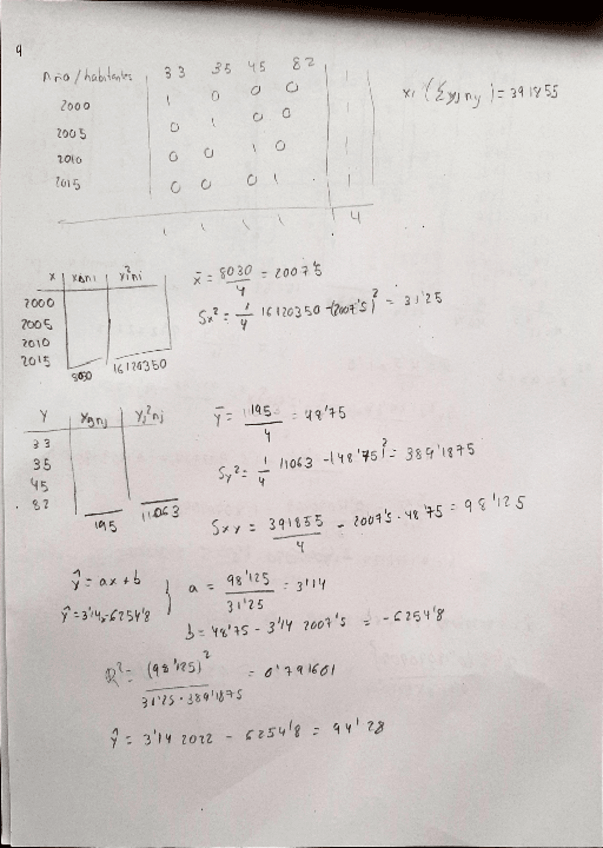 9
Año/habitantes 33 35 45 82
2000 1 0 0 0 1
2005 0 1 0 0 1
2010 0 0 1 0 1
2015 0 0 0 1 1
1 1 1 1 4
xi (Σyj nij) = 391855
x xini xi²ni
2000
2005
2010
2015
8030 16120350
x̄ = 8030/4 = 2007'5
Sx² = 1/4 16120350 - (2007'5)² = 31'25
Y yjnj yj²nj
33
35
45
82
195 11063
ȳ = 195/4 = 48'75
Sy² = 1/4 11063 - (48'75)² = 389'1875
Sxy = 391855/4 - 2007'5 · 48'75 = 98'125
ŷ = ax + b
ŷ = 3'14x - 6254'8
a = 98'125/31'25 = 3'14
b = 48'75 - 3'14 2007'5 = -6254'8
R² = (98'125)²/31'25 · 389'1875 = 0'791601
ŷ = 3'14 2022 - 6254'8 = 94'28